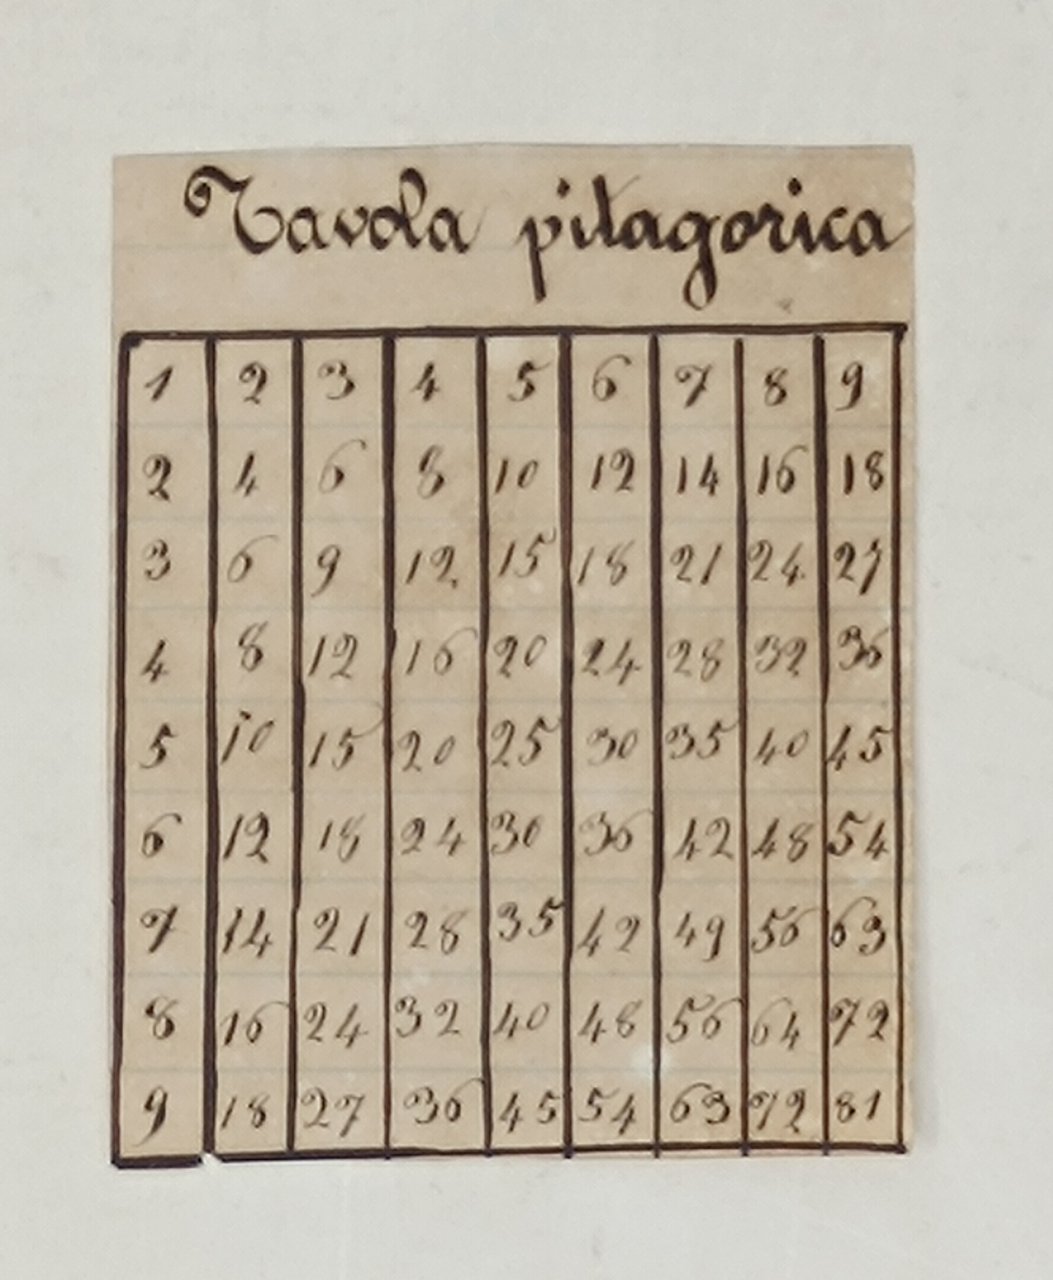 Tavola pitagorica
1 2 3 4 5 6 7 8 9
2 4 6 8 10 12 14 16 18
3 6 9 12 15 18 21 24 27
4 8 12 16 20 24 28 32 36
5 10 15 20 25 30 35 40 45
6 12 18 24 30 36 42 48 54
7 14 21 28 35 42 49 56 63
8 16 24 32 40 48 56 64 72
9 18 27 36 45 54 63 72 81